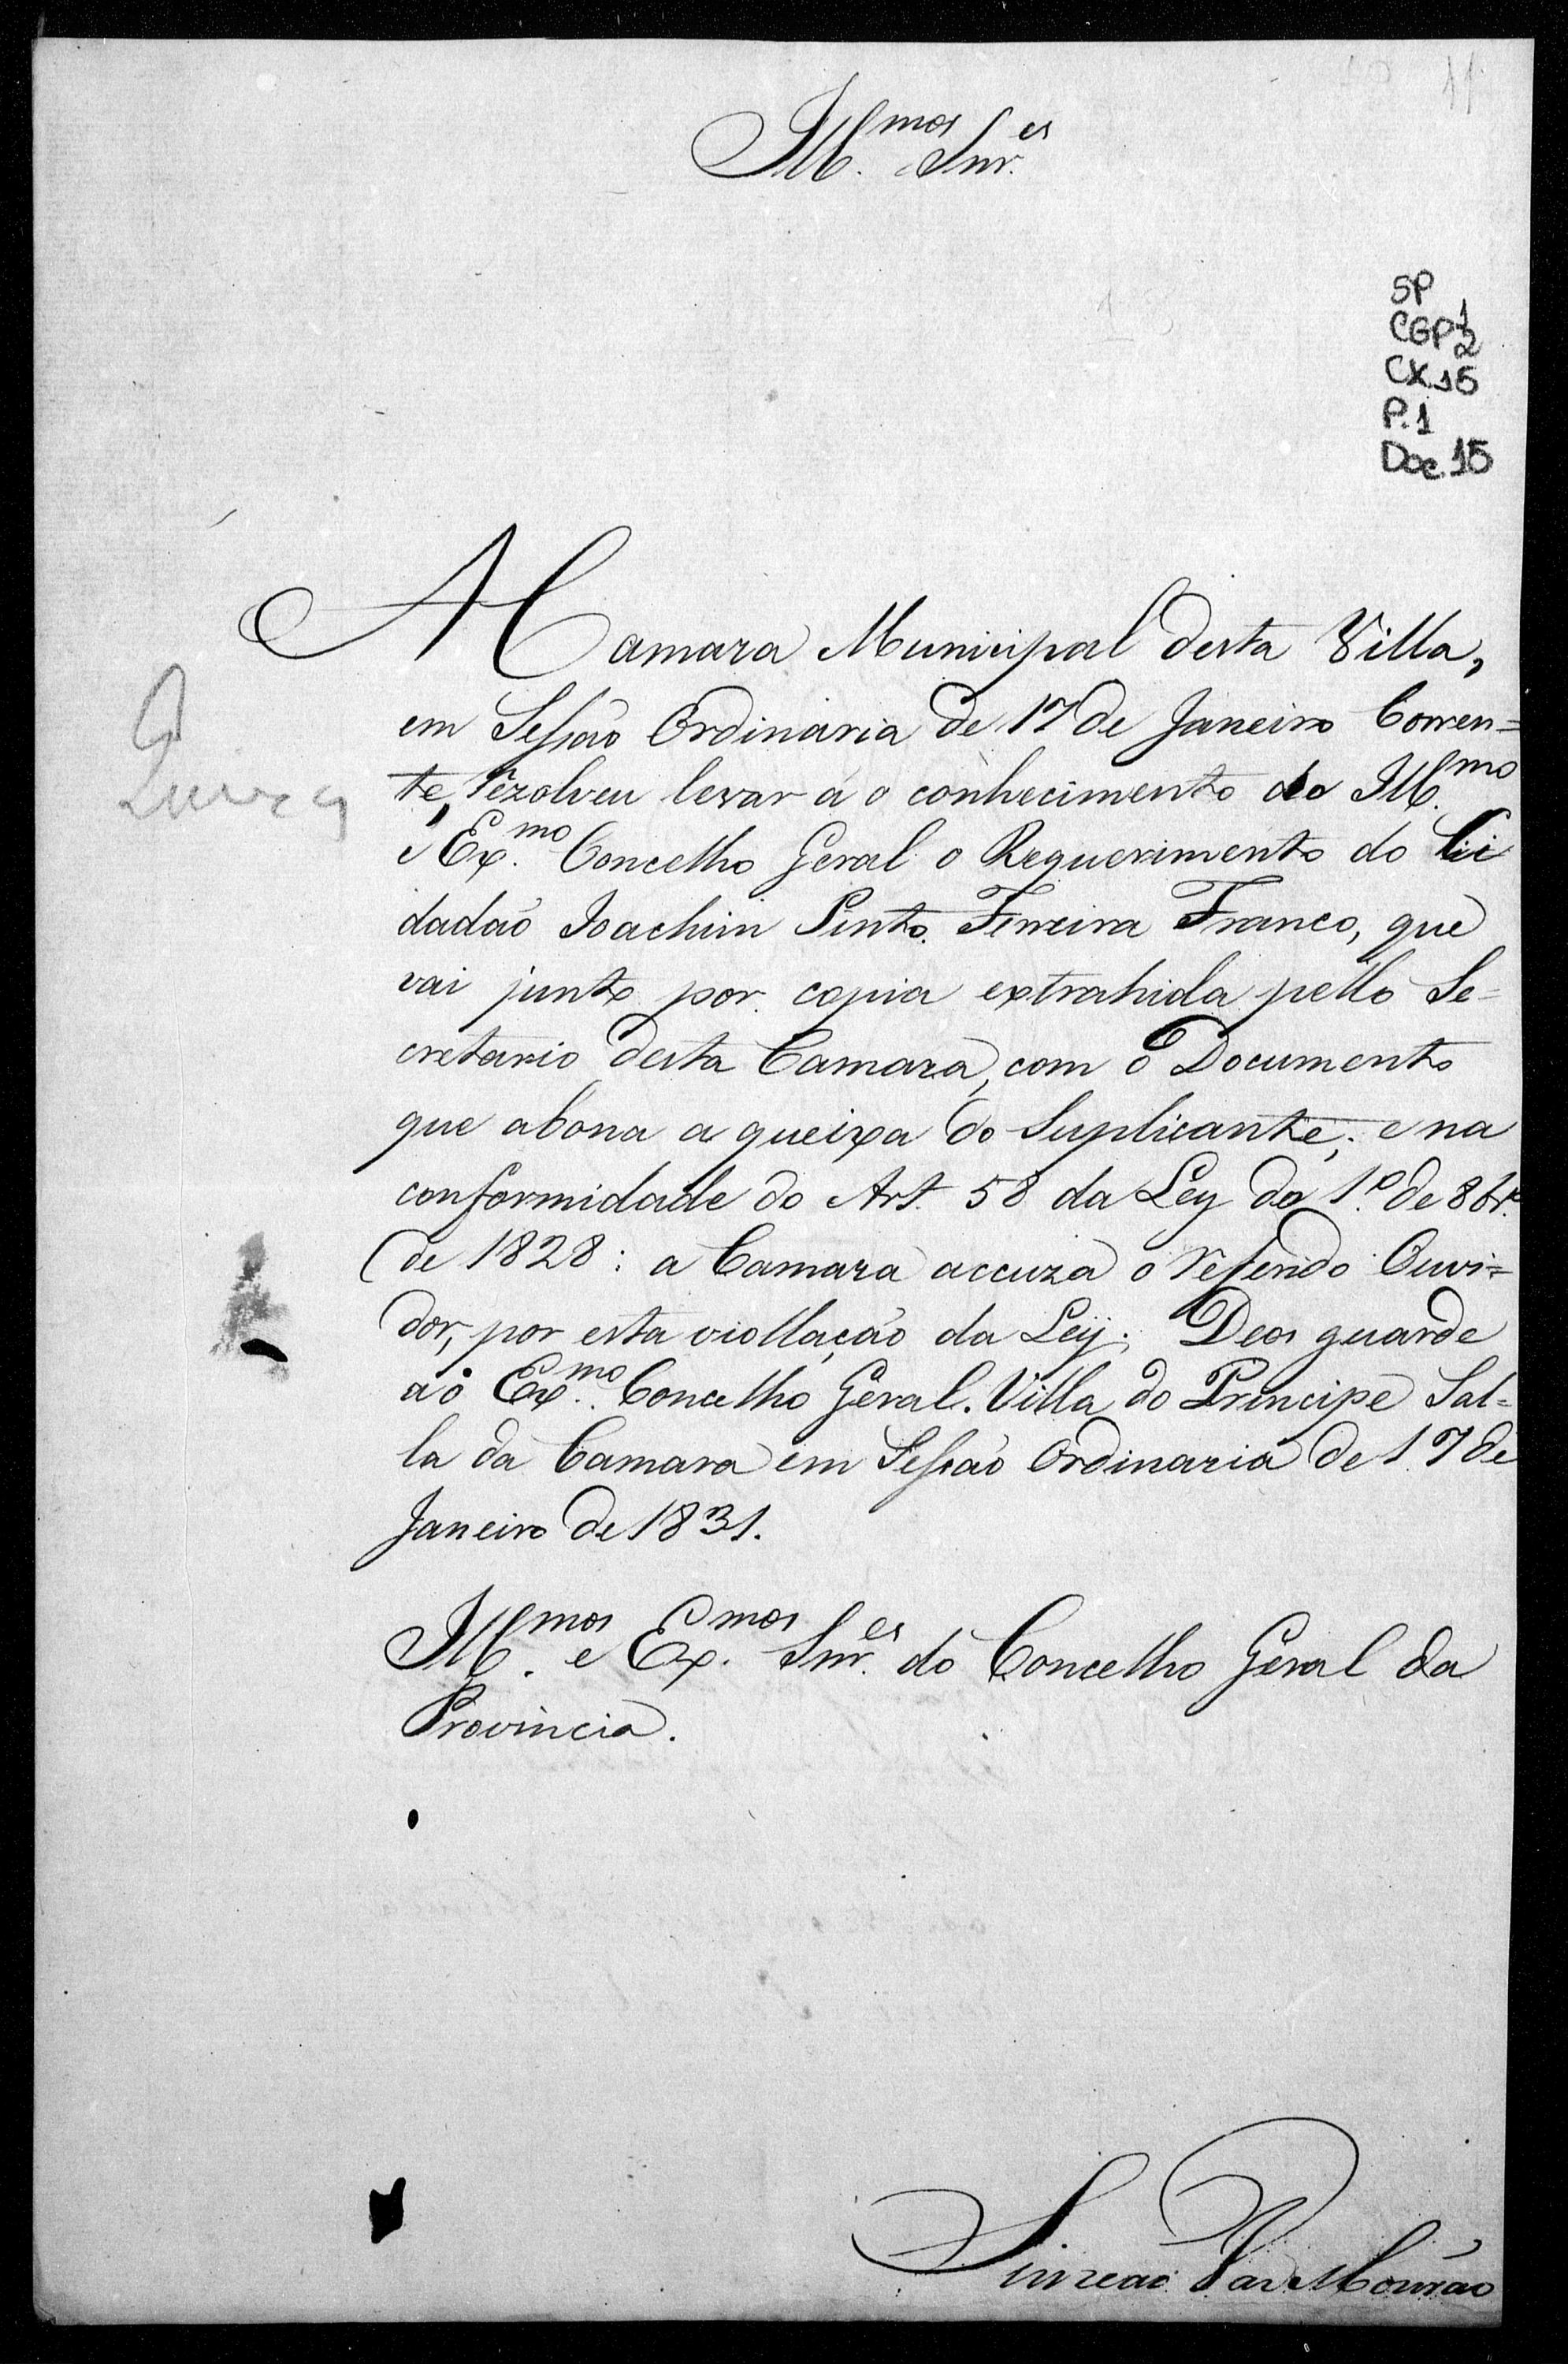 11
Ill.mos Snr.es
SP
CGP 1 2
CX.15
P.1
Doc.15
A Camara Municipal desta Villa,
em Sessão Ordinaria de 17 de Janeiro Corren=
te, rezolveu levar á o conhecimento do Ill.mo
e Ex.mo Concelho Geral o Requerimento do Ci
dadão Joachim Pinto Ferreira Franco, que
vai junto por copia extrahida pello Se=
cretario desta Camara, com o Documento
que abona a queixa do Suplicante; e na
conformidade do Art. 58 da Ley do 1º de 8br.º
de 1828: a Camara accuza o referido Ouvi=
dor, por esta viollação da Ley. Deos guarde
ao Ex.mo Concelho Geral. Villa do Principe Sal=
la da Camara em Sessão Ordinaria de 17 de
Janeiro de 1831.
Ill.mos e Ex.mos Snr.es do Concelho Geral da
Provincia.
Simeão Vas Mourão